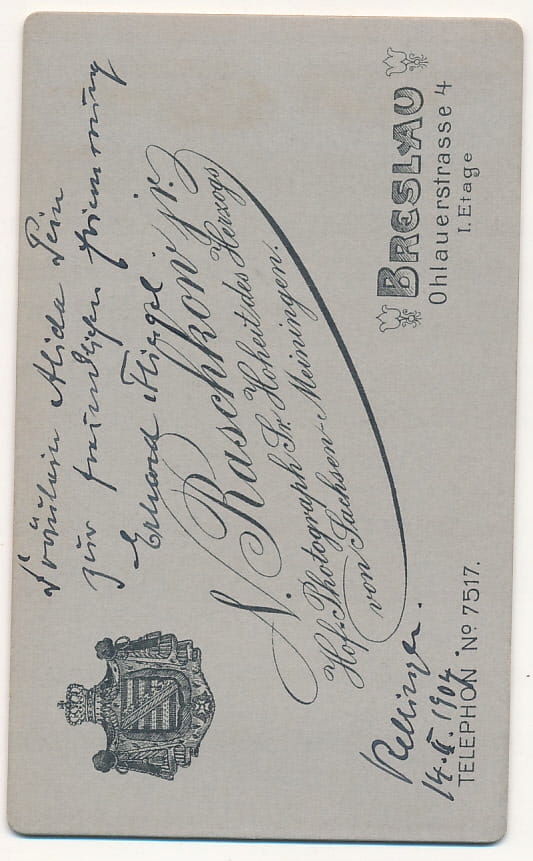 Fräulein Alida Pein
zur freundlichen Erinnerung
Erhard Fliegel.
N. Raschkow jr.
Hof-Photograph Sr. Hoheit des Herzogs
von Sachsen-Meiningen.
Rellingen.
14. II. 1904.
TELEPHON No 7517.
BRESLAU
Ohlauerstrasse 4
I. Etage